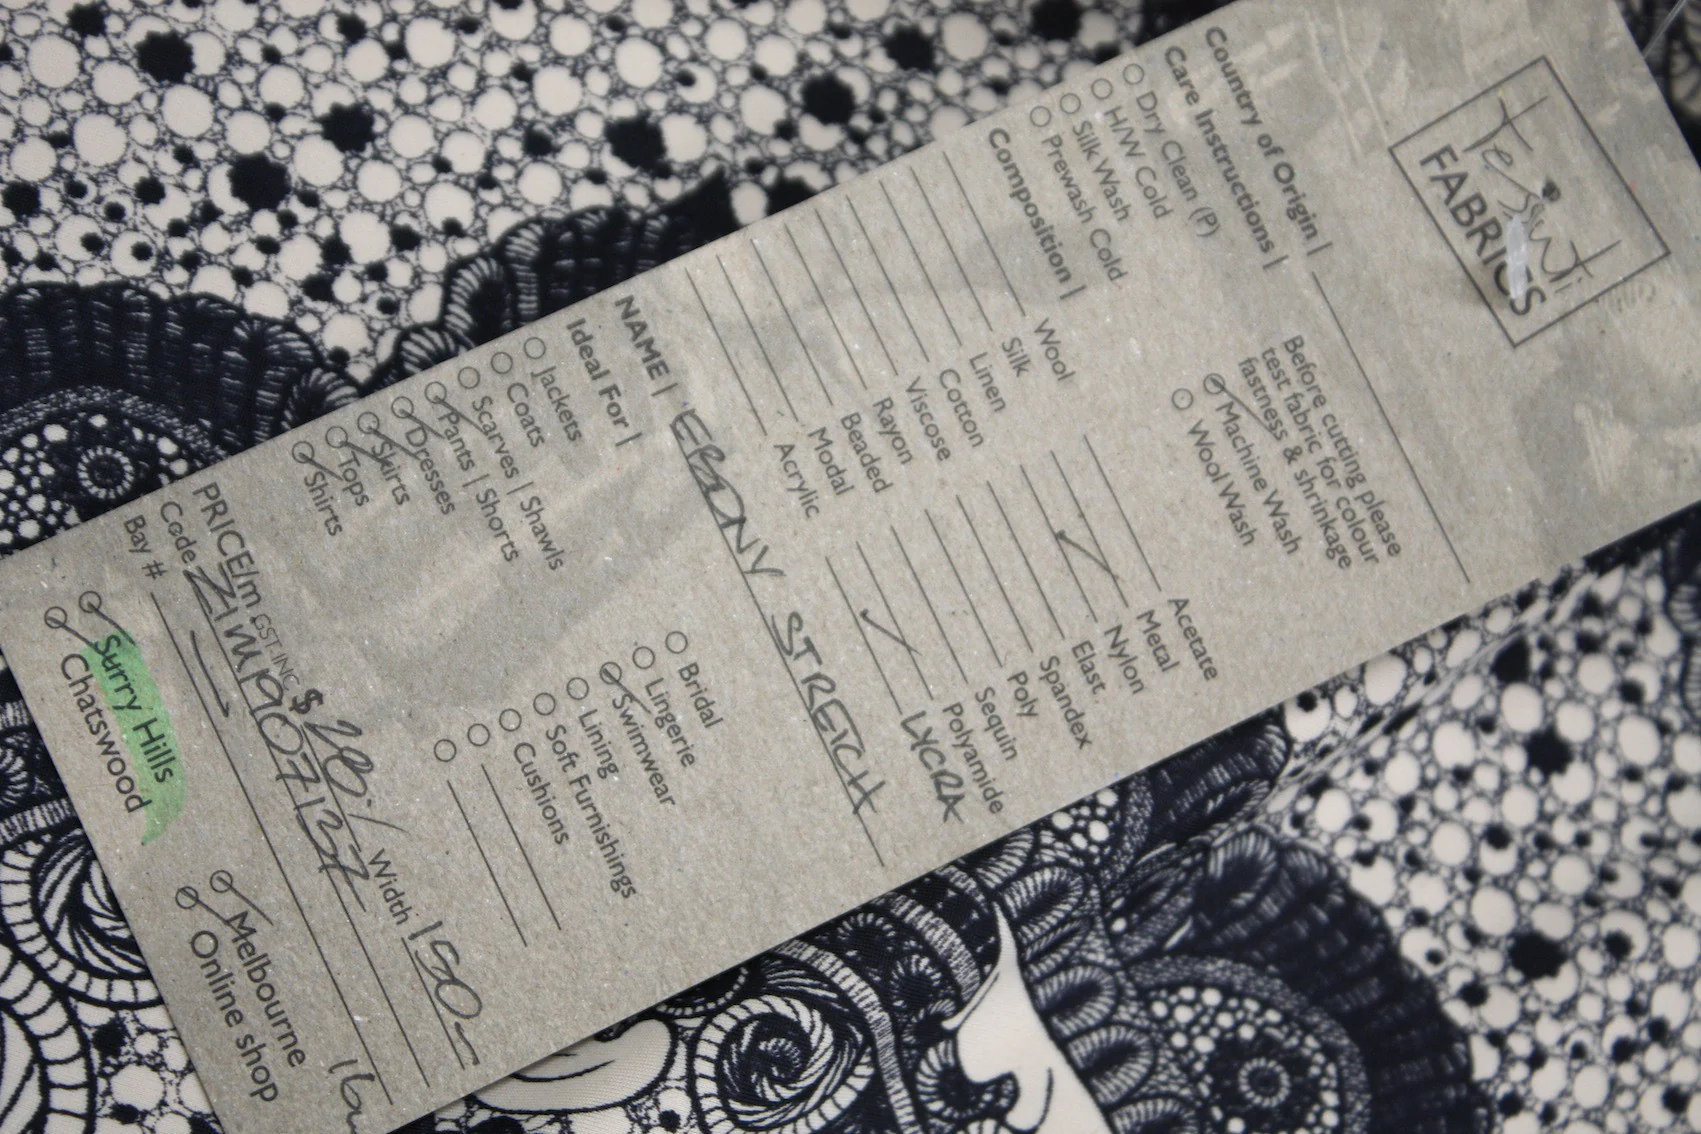 Tessuti
FABRICS
Country of Origin |
Care Instructions |
Dry Clean (P)
H/W Cold
Silk Wash
Prewash Cold
Before cutting please
test fabric for colour
fastness & shrinkage
Machine Wash
Wool Wash
Composition |
Wool
Silk
Linen
Cotton
Viscose
Rayon
Beaded
Modal
Acrylic
Acetate
Metal
Nylon
Elast
Spandex
Poly
Sequin
Polyamide
LYCRA
NAME | EBONY STRETCH
Ideal For |
Jackets
Coats
Scarves | Shawls
Pants | Shorts
Dresses
Skirts
Tops
Shirts
Bridal
Lingerie
Swimwear
Lining
Soft Furnishings
Cushions
PRICE/m GST INC $ 20./ Width 150-
Code ZIM1907137
Bay #
Surry Hills
Chatswood
Melbourne
Online shop